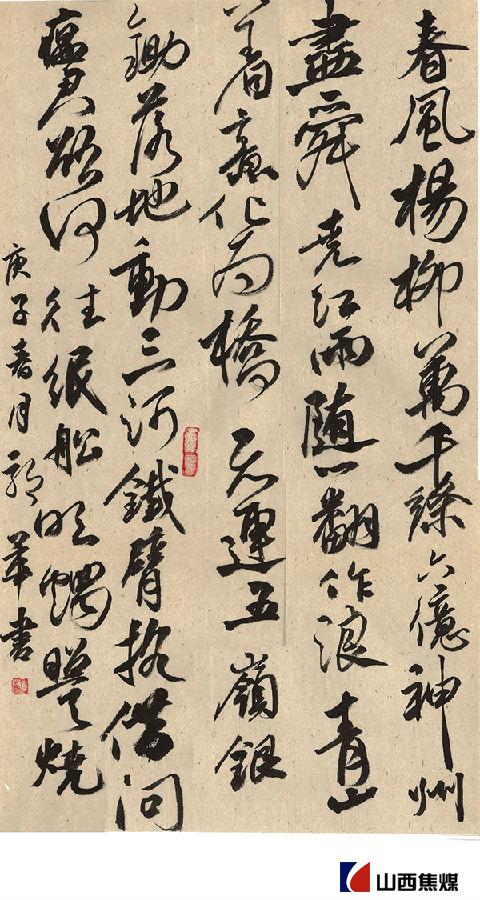 春風楊柳萬千條六億神州
盡舜堯红雨随心翻作浪青山
着意化为橋天連五嶺銀
鋤落地動三河鐵臂摇借问
瘟君欲何往纸船明燭照天燒
庚子春月華書
山西焦煤